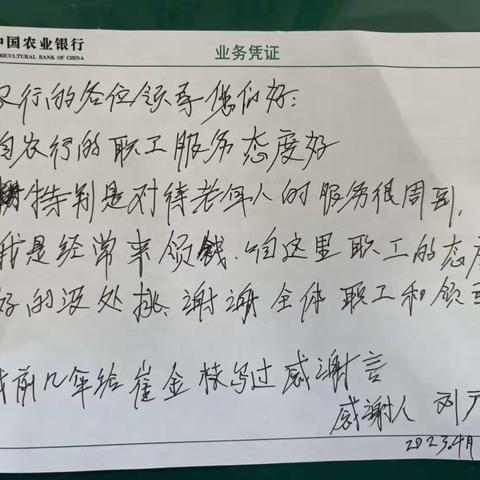 中国农业银行
AGRICULTURAL BANK OF CHINA
业务凭证
农行的各位领导您们好：
农行的职工服务态度好
特别是对待老年人的服务很周到,
我是经常来领钱.咱这里职工的态度
好的没处挑.谢谢全体职工和领导
我前几年给崔金枝写过感谢言
感谢人 刘
2023.4月